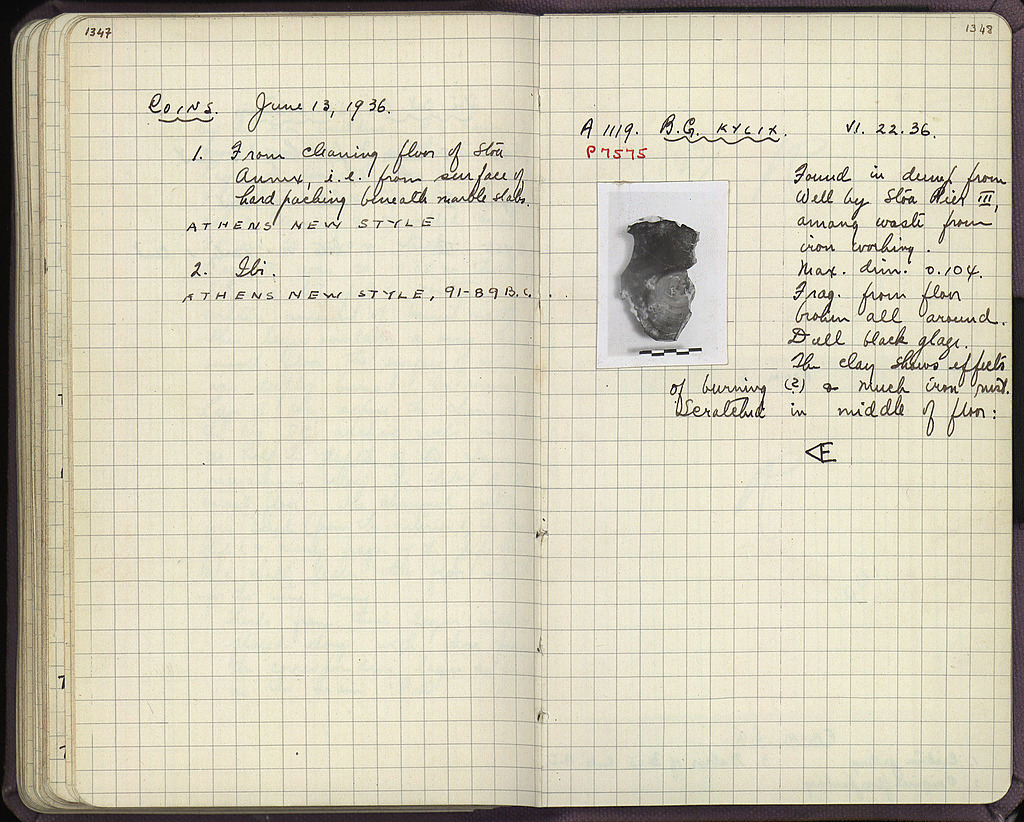 1347
COINS. June 13, 1936.
1. From cleaning floor of Stoa
Annex, i.e. from surface of
hard packing beneath marble slabs.
ATHENS NEW STYLE
2. Ibi.
ATHENS NEW STYLE, 91-89 B.C. . .
1348
A 1119. B.G. KYLIX. VI. 22. 36.
P 7575
Found in dump from
Well by Stoa Pier III,
among waste from
iron working.
Max. dim. 0.104.
Frag. from floor
broken all around.
Dull black glaze.
The clay shows effects
of burning (?) & much iron rust.
Scratched in middle of floor: